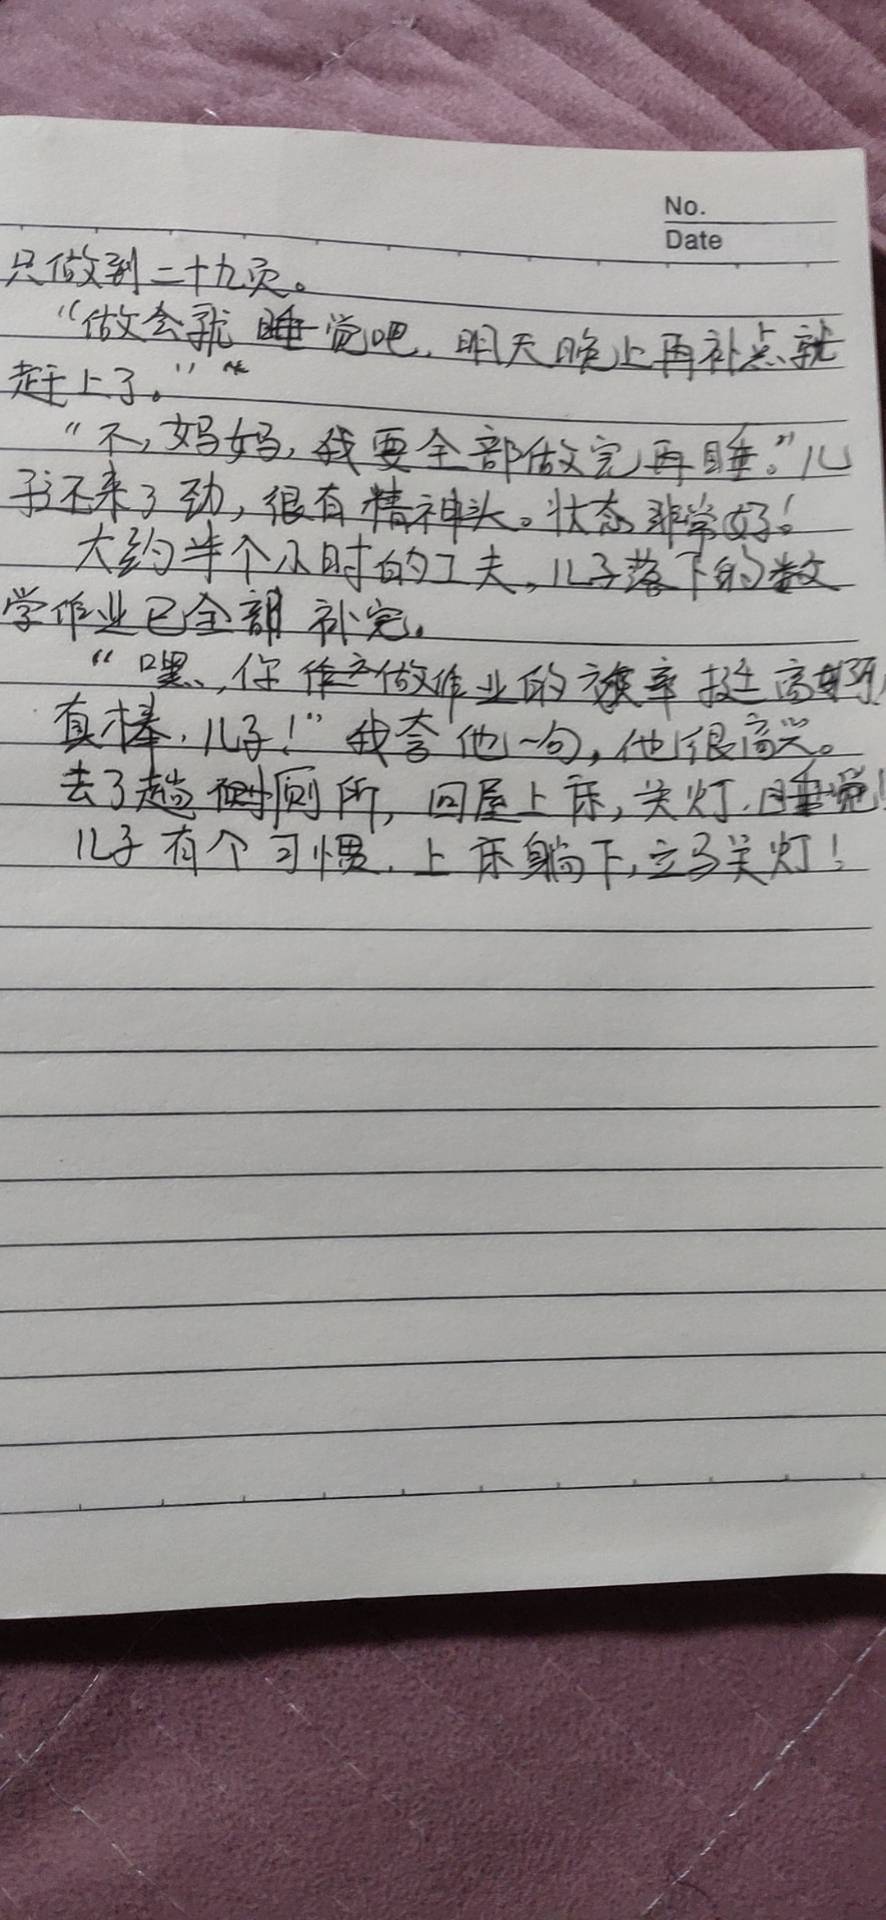 No.
Date
只做到二十九页。
“做会就睡觉吧，明天晚上再补点就
赶上了。”
“不，妈妈，我要全部做完再睡。”儿
子还来了劲，很有精神头。状态非常好！
大约半个小时的工夫，儿子落下的数
学作业已全部补完。
“嘿，你做作业的效率挺高
真棒，儿子！”我夸他一句，他很高兴。
去了趟厕所，回屋上床，关灯，睡觉！
儿子有个习惯，上床躺下，立马关灯！